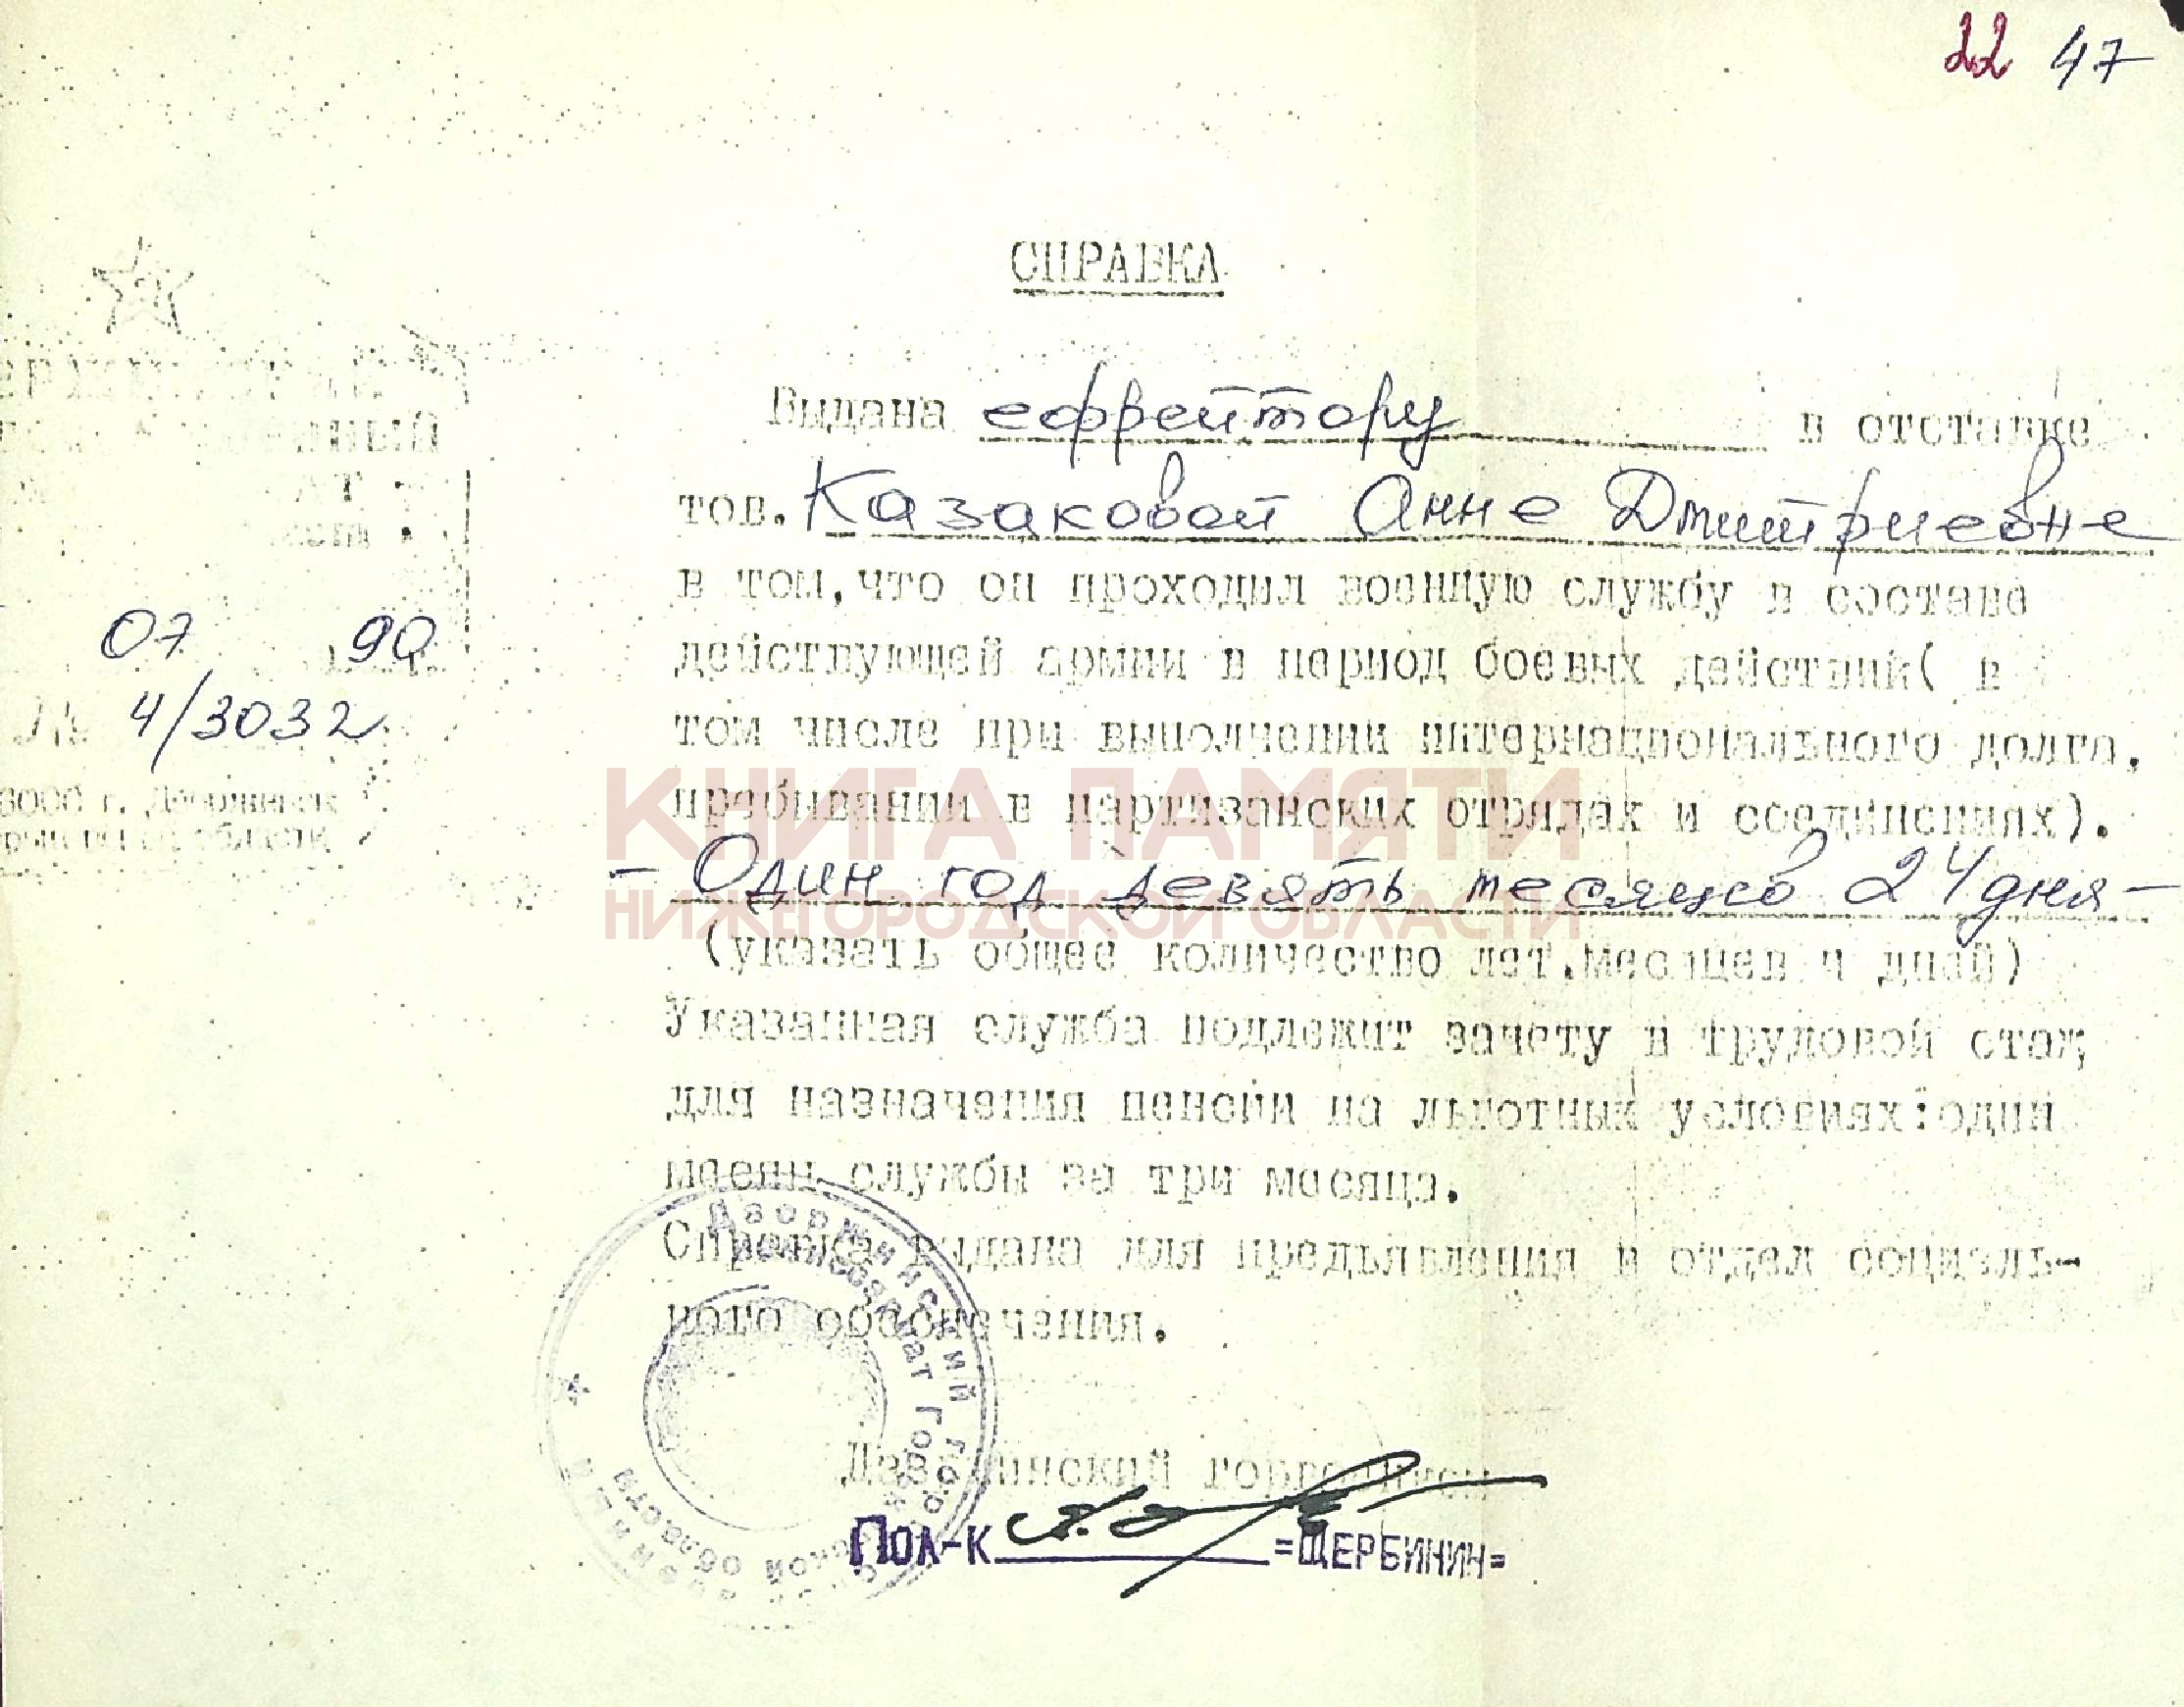 22 47
СПРАВКА
Выдана ефрейтору в отставке
тов. Казаковой Анне Дмитриевне
в том, что он проходил военную службу в составе
действующей армии в период боевых действий( в
том числе при выполнении интернационального долга,
пребывании в партизанских отрядах и соединениях).
- Один год девять месяцев 24 дня -
(указать общее количество лет, месяцев и дней)
Указанная служба подлежит зачету в трудовой стаж
для назначения пенсии на льготных условиях:один
месяц службы за три месяца.
Справка выдана для предъявления в отдел социаль-
ного обеспечения.
Дзержинский горвоенком
Пол-к =ЩЕРБИНИН=
07 90
№ 4/3032
г. Дзержинск
области
Дзержинский гор
военкомат Горьковской области
КНИГА ПАМЯТИ
НИЖЕГОРОДСКОЙ ОБЛАСТИ